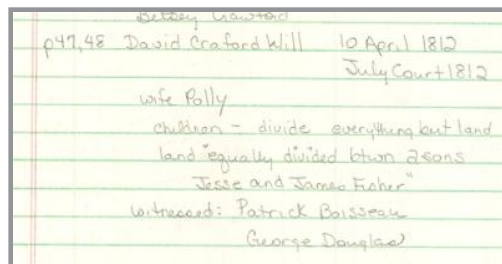 Betsey Crawford
p47,48 David Craford Will 10 April 1812
July Court 1812
wife Polly
children - divide everything but land
land "equally divided btwn 2 sons
Jesse and James Fisher"
witnessed: Patrick Boisseau
George Douglas